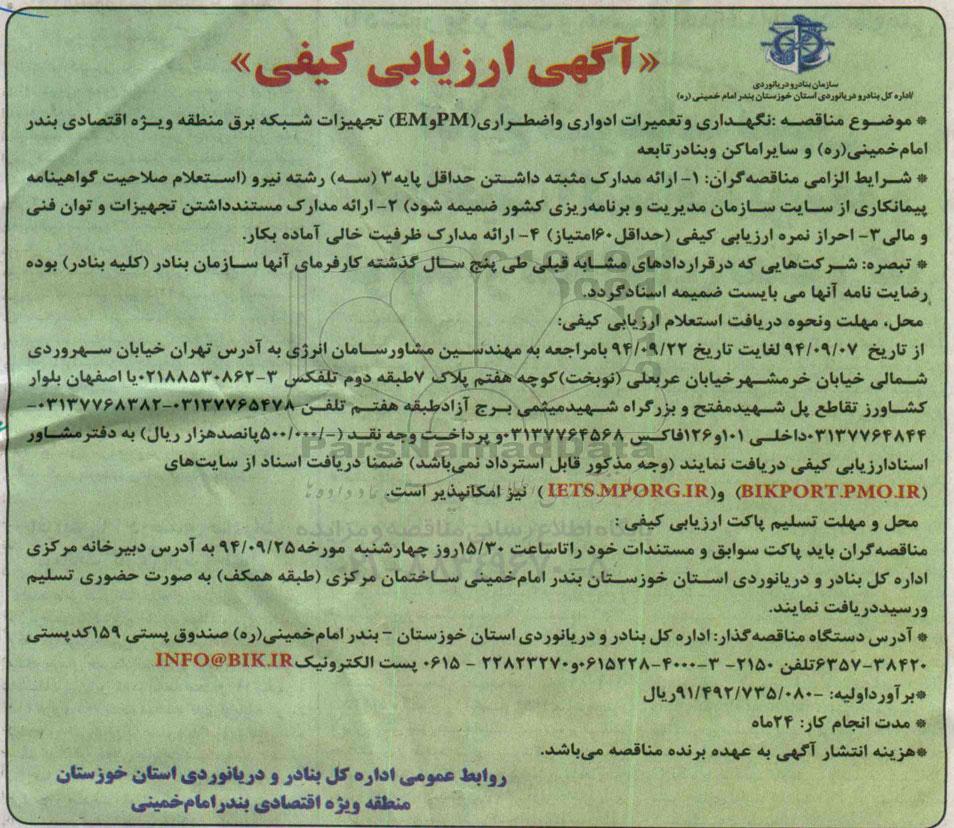 سازمان بنادر و دریانوردی
اداره کل بنادر و دریانوردی استان خوزستان بندر امام خمینی (ره)
«آگهی ارزیابی کیفی»
* موضوع مناقصه :نگهداری وتعمیرات ادواری واضطراری(PMوEM) تجهیزات شبکه برق منطقه ویژه اقتصادی بندر
امام‌خمینی(ره) و سایراماکن وبنادرتابعه
* شرایط الزامی مناقصه‌گران: ۱- ارائه مدارک مثبته داشتن حداقل پایه۳ (سه) رشته نیرو (استعلام صلاحیت گواهینامه
پیمانکاری از سایت سازمان مدیریت و برنامه‌ریزی کشور ضمیمه شود) ۲- ارائه مدارک مستندداشتن تجهیزات و توان فنی
و مالی۳- احراز نمره ارزیابی کیفی (حداقل۶۰امتیاز) ۴- ارائه مدارک ظرفیت خالی آماده بکار.
* تبصره: شرکت‌هایی که درقراردادهای مشابه قبلی طی پنج سال گذشته کارفرمای آنها سازمان بنادر (کلیه بنادر) بوده
رضایت نامه آنها می بایست ضمیمه اسنادگردد.
محل، مهلت ونحوه دریافت استعلام ارزیابی کیفی:
از تاریخ ۹۴/۰۹/۰۷ لغایت تاریخ ۹۴/۰۹/۲۲ بامراجعه به مهندسین مشاورسامان انرژی به آدرس تهران خیابان سهروردی
شمالی خیابان خرمشهرخیابان عربعلی (نوبخت)کوچه هفتم پلاک ۷طبقه دوم تلفکس ۳-۰۲۱۸۸۵۳۰۸۶۲یا اصفهان بلوار
کشاورز تقاطع پل شهیدمفتح و بزرگراه شهیدمیثمی برج آزادطبقه هفتم تلفن ۰۳۱۳۷۷۶۵۴۷۸-۰۳۱۳۷۷۶۸۳۸۲-
۰۳۱۳۷۷۶۴۸۴۴داخلی ۱۰۱و۱۲۶فاکس ۰۳۱۳۷۷۶۴۵۶۸و پرداخت وجه نقد (-/۵۰۰/۰۰۰پانصدهزار ریال) به دفترمشاور
اسنادارزیابی کیفی دریافت نمایند (وجه مذکور قابل استرداد نمی‌باشد) ضمنا دریافت اسناد از سایت‌های
(BIKPORT.PMO.IR) و(IETS.MPORG.IR ) نیز امکانپذیر است.
محل و مهلت تسلیم پاکت ارزیابی کیفی :
مناقصه‌گران باید پاکت سوابق و مستندات خود راتاساعت ۱۵/۳۰روز چهارشنبه مورخه۹۴/۰۹/۲۵ به آدرس دبیرخانه مرکزی
اداره کل بنادر و دریانوردی استان خوزستان بندر امام‌خمینی ساختمان مرکزی (طبقه همکف) به صورت حضوری تسلیم
ورسیددریافت نمایند.
* آدرس دستگاه مناقصه‌گذار: اداره کل بنادر و دریانوردی استان خوزستان – بندر امام‌خمینی(ره) صندوق پستی ۱۵۹کدپستی
۳۸۴۲۰-۶۳۵۷تلفن ۲۱۵۰- ۳-۴۰۰۰-۰۶۱۵۲۲۸و۲۲۸۲۳۲۷۰ - ۰۶۱۵ پست الکترونیک INFO@BIK.IR
*برآورداولیه: -۹۱/۴۹۲/۷۳۵/۰۸۰ریال
* مدت انجام کار: ۲۴ماه
*هزینه انتشار آگهی به عهده برنده مناقصه می‌باشد.
روابط عمومی اداره کل بنادر و دریانوردی استان خوزستان
منطقه ویژه اقتصادی بندرامام‌خمینی
ParsNamadData